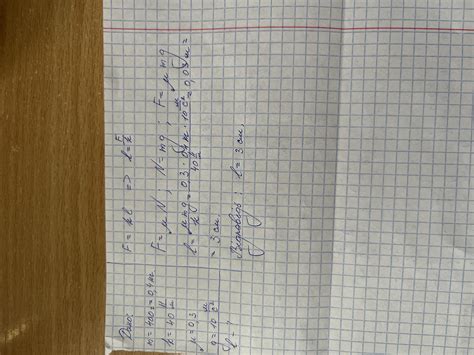 Дано:
m = 400г = 0,4 кг
k = 40 Н/м
μ = 0,3
g = 10 м/с²
l - ?
F = kl => l = F/k
F = μN; N = mg; F = μmg
l = μmg/k = 0,3 · 0,4 · 10 м/с² / 40 Н/м = 0,03 м =
= 3 см.
Відповідь: l = 3 см.